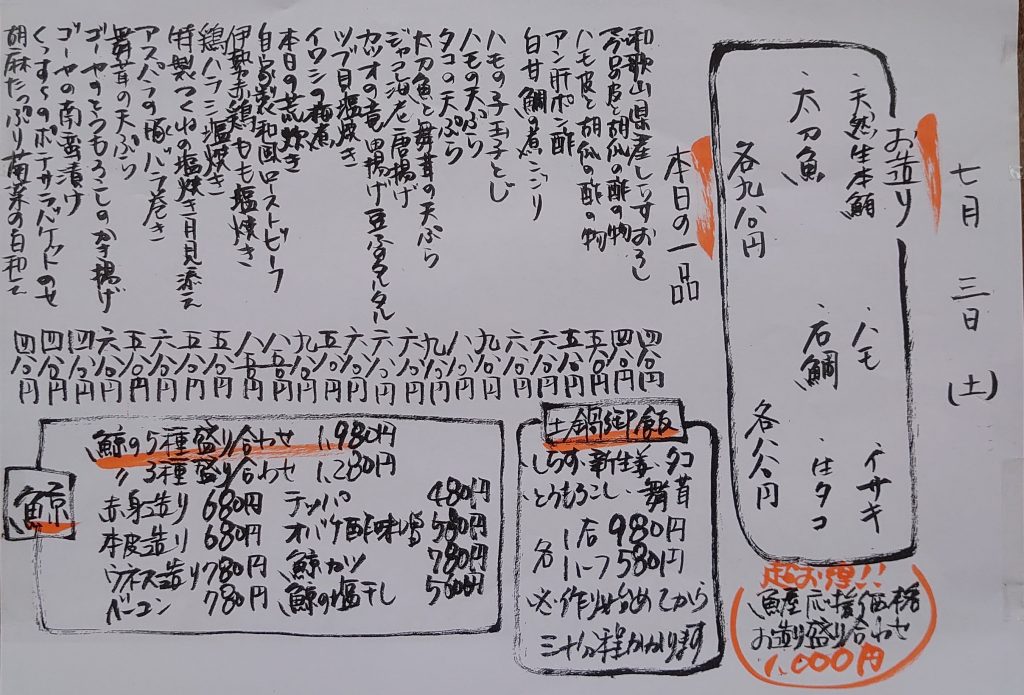 七月 三日 (土)
お造り
・天然生本鮪 ・ハモ ・イサキ
・太刀魚 ・石鯛 ・生タコ
各九八〇円 各八八〇円
超お得!!
魚屋応援価格
お造り盛り合わせ
1,000円
本日の一品
和歌山県産しらすおろし 四八〇円
今日の皮と胡瓜の酢の物 四八〇円
ハモ皮と胡瓜の酢の物 五八〇円
アン肝ポン酢 五八〇円
白甘鯛の煮こごり 六八〇円
ハモの子玉子とじ 六八〇円
ハモの天ぷら 九八〇円
タコの天ぷら 八八〇円
太刀魚と舞茸の天ぷら 九八〇円
ジャコ海老唐揚げ 六八〇円
カツオの竜田揚げ豆ふタルタル 六八〇円
ツブ貝塩焼き 六八〇円
イワシの梅煮 五八〇円
本日の荒炊き 九八〇円
自家製和風ローストビーフ 八八〇円
伊勢赤鶏もも塩焼き 八五〇円
鶏ハラミ塩焼き 五八〇円
特製つくねの塩焼き月見添え 五八〇円
アスパラの豚バラ巻き 五八〇円
舞茸の天ぷら 六八〇円
ゴーヤのとうもろこしのかき揚げ 四八〇円
ゴーヤの南蛮漬け 四八〇円
くんすーのポテサラバケットのせ 四八〇円
胡麻たっぷり菊菜の白和え 四八〇円
土鍋御飯
しらす・新生姜・タコ
とうもろこし・舞茸
各 1合 980円
ハーフ 580円
※作り始めてから
三十分程かかります
鯨
鯨の5種盛り合わせ 1,980円
〃 3種盛り合わせ 1,280円
赤身造り 680円 テッパ 480円
本皮造り 680円 オバケ酢味噌 580円
ウネス造り 780円 鯨カツ 780円
ベーコン 780円 鯨の塩干し 580円